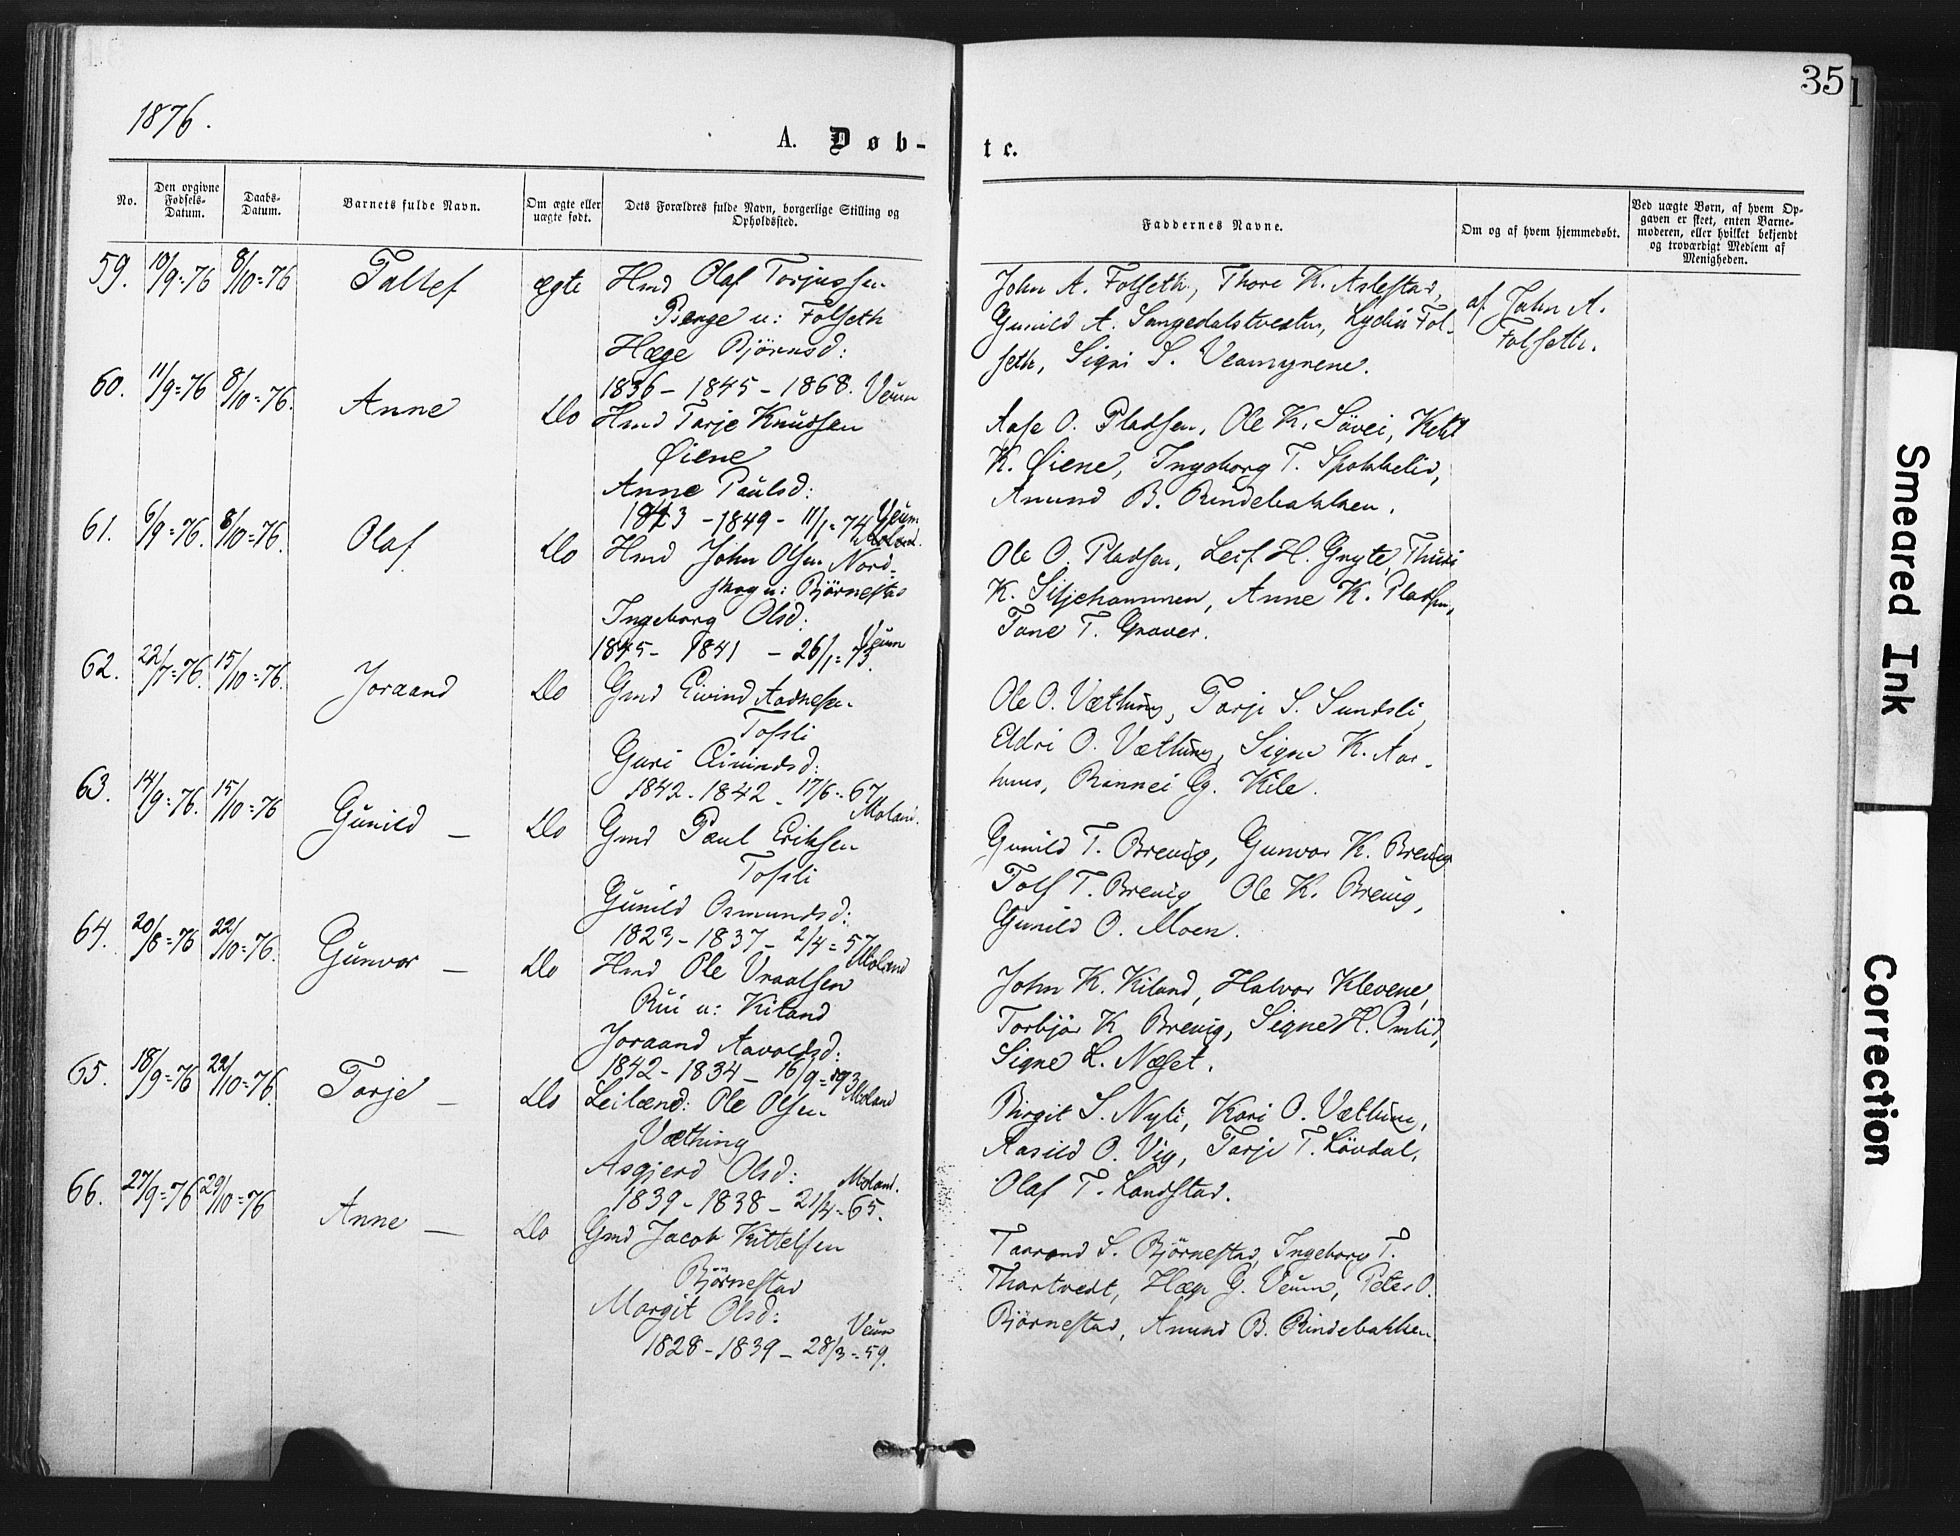 35
1
1876.
A. Døb-
te.
No.
Den opgivne Fødsels-Datum.
Daabs-Datum.
Barnets fulde Navn.
Om ægte eller uægte født.
Dets Forældres fulde Navn, borgerlige Stilling og Opholdssted.
Faddernes Navne.
Om og af hvem hjemmedøbt.
Ved uægte Børn, af hvem Opgaven er skeet, enten Barnemoderen, eller hvilket bekjendt og troværdigt Medlem af Menigheden.
59. 10/9=76 8/10=76 Tallef ægte Hmd Olaf Torjussen
Berge u: Folseth
Hæge Bjørnsd:
1836 - 1845 - 1868. Veum
John A. Folseth, Thore K. Aslestad,
Gunild A. Sangedalstveiten, Lydia Fol-
seth, Signi S. Veamyrene.
af John A.
Folseth.
60. 11/9=76 8/10=76. Anne Do Hmd Tarje Knudsen
Øiene
Anne Paulsd:
1843 - 1849 - 11/1=74 Veum
Moland.
Aase O. Pladsen, Ole K. Søvei, Ketil
K. Øiene, Ingeborg T. Spokkelid,
Anund B. Rindebakken.
61. 6/9=76. 8/10=76. Olaf Do Hmd John Olsen Nord-
skog u: Bjørnestad
Ingeborg Olsd:
1845 - 1841 - 26/1=73. Veum
Ole O. Pladsen, Leif H. Gryte, Thuri
K. Siljehammen, Anne K. Pladsen,
Tone T. Graver.
62. 22/7=76. 15/10=76. Joraand Do Gmd Eivind Aadnesen
Tofsli
Guri Eivindsd:
1842 - 1842 - 17/6=67
Moland.
Ole O. Vætting, Tarje S. Sundsli,
Eldri O. Vætting, Signe K. Aar-
huus, Rannei G. Kile.
63. 14/9=76. 15/10=76 Gunild — Do Gmd Paul Eriksen
Tofsli
Gunild Osmundsd:
1823 - 1837 - 2/4=57
Moland
Gunild T. Brevig, Gunvor K. Brevig
Tolf T. Brevig, Ole K. Brevig,
Gunild O. Moen.
64. 20/8=76 22/10=76. Gunvor — Do Hmd Ole Vraalsen
Rui u: Kiland
Joraand Aavoldsd:
1842 - 1834 - 16/9=
Moland
John K. Kiland, Halvor Klevene,
Torbjør K. Brevig, Signe H. Omlid,
Signe L. Næset.
65. 18/9=76 22/10=76. Tarje — Do Leilænd: Ole Olsen
Vætting
Asgjerd Olsd:
1839 - 1838 - 21/4=65.
Moland.
Birgit S. Nyli, Kari O. Vætting,
Aasild O. Vig, Tarje T. Løvdal,
Olaf T. Landstad.
66. 27/9=76 29/10=76 Anne — Do Gmd Jacob Kittelsen
Bjørnestad
Margit Olsd:
Veum
1828 - 1839 - 28/3=59.
Taarand S. Bjørnestad, Ingeborg T.
Thortvedt, Hæge G. Veum, Peter O.
Bjørnestad, Anund B. Rindebakken
Smeared Ink
Correction